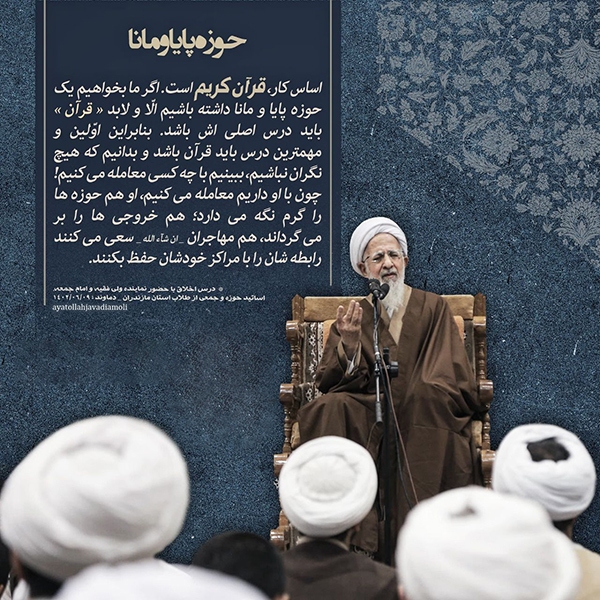 حوزه پایا و مانا
اساس کار، قرآن کریم است. اگر ما بخواهیم یک
حوزه پایا و مانا داشته باشیم الّا و لابد « قرآن »
باید درس اصلی اش باشد. بنابراین اوّلین و
مهمترین درس باید قرآن باشد و بدانیم که هیچ
نگران نباشیم، ببینیم با چه کسی معامله می کنیم!
چون با او داریم معامله می کنیم، او هم حوزه ها
را گرم نگه می دارد؛ هم خروجی ها را بر
می گرداند، هم مهاجران _ان شآء الله _ سعی می کنند
رابطه شان را با مراکز خودشان حفظ بکنند.
* درس اخلاق با حضور نماینده ولی فقیه و امام جمعه،
اساتید حوزه و جمعی از طلاب استان مازندران _ دماوند؛ ۱۴۰۲/۰۶/۰۹
ayatollahjavadiamoli